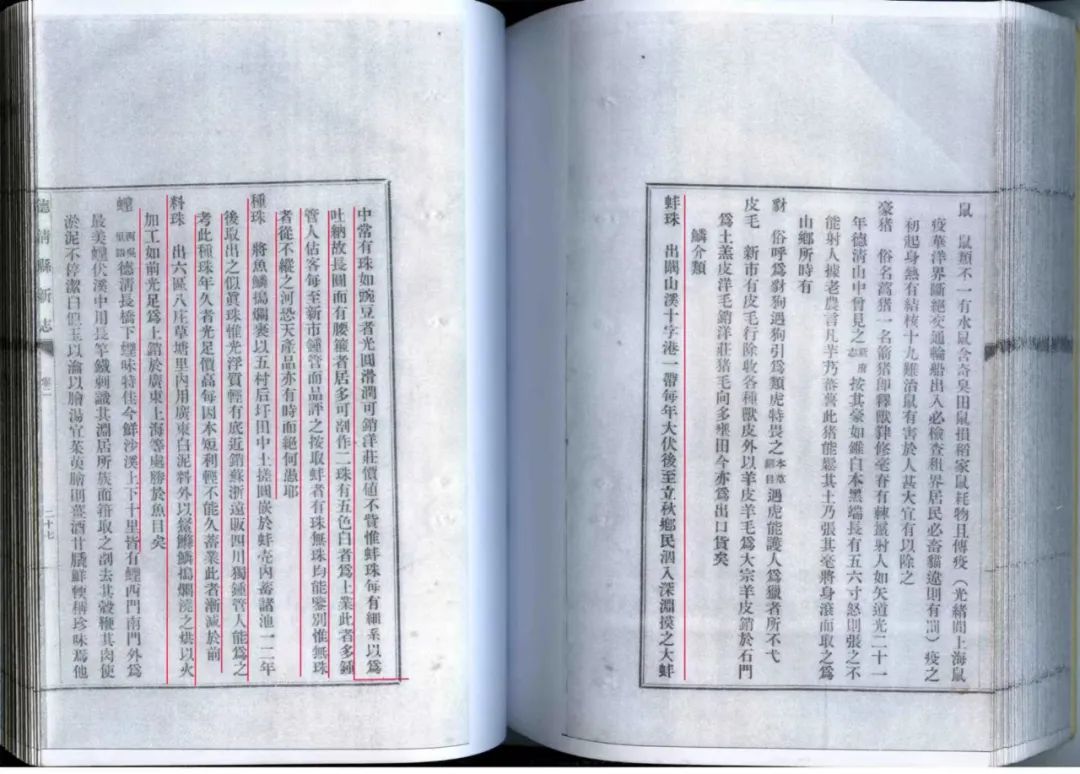 鼠　鼠類不一有水鼠含奇臭田鼠損稻家鼠耗物且傳疫（光緒間上海鼠
疫華洋界斷絕交通輪船出入必檢查租界居民必畜貓違則有罰）疫之
初起身熱有結核十九難治鼠有害於人甚大宜有以除之
豪猪　俗名蒿猪一名箭猪即釋獸貄修毫脊有棘鬣射人如矢道光二十一
年德清山中曾見之新府志按其豪如錐自本黑端長有五六寸怒則張之不
能射人據老農言凡芋艿蕃薯此猪能鬆其土乃張其毫將身滾而取之為
山鄉所時有
豺　俗呼為豺狗遇狗引為類虎特畏之本草綱目遇虎能護人為獵者所不弋
皮毛　新市有皮毛行除收各種獸皮外以羊皮羊毛為大宗羊皮銷於石門
為土羔皮洋毛銷洋莊猪毛向多壅田今亦為出口貨矣
鱗介類
蚌珠　出闗山溪十字港一帶每年大伏後至立秋鄉民泅入深淵摸之大蚌
中常有珠如豌豆者光圓滑潤可銷洋莊價値不貲惟蚌珠每有細系以為
吐納故長圓而有腰箍者居多可剖作二珠有五色白者為上業此者多鍾
管人佔客每至新市鍾管面品評之按取蚌者有珠無珠均能鑒別惟無珠
者從不縱之河恐天產品亦有時而絕何愚耶
種珠　將魚鱗搗爛裹以五村后圩田中土搓圓嵌於蚌壳內畜諸池一二年
後取出之似眞珠惟光浮質輕有底近銷蘇浙遠販四川獨鍾管人能為之
考此種珠年久者光足價高每因本短利輕不能久蓄業此者漸減於前
料珠　出六區八庄草塘里內用廣東白泥料外以鯗鰳鱗搗爛澆之烘以火
加工如前光足為上銷於廣東上海等處勝於魚目矣
蟶　德清長橋下蟶味特佳今鮮沙溪上下十里皆有蟶西門南門外為
最美蟶伏溪中用長竿鐵刺識其淵居所族而簎取之剖去其殼鞭其肉使
淤泥不停潔白但玉以瀹以膾湯宜茱萸膾則薑酒廿膬鮮輭稱珍味焉他
德清縣新志
卷二
二十七